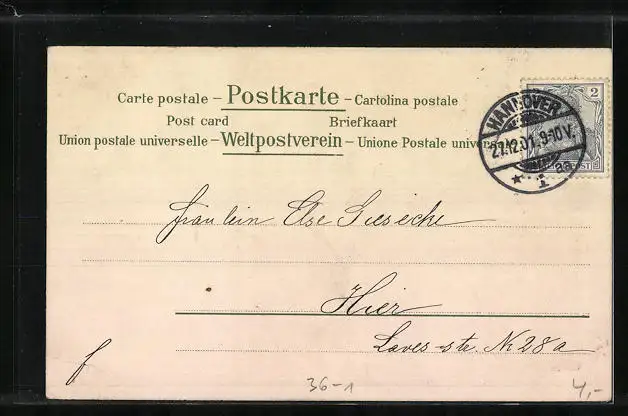 Carte postale – Postkarte – Cartolina postale
Post card Briefkaart
Union postale universelle – Weltpostverein – Unione Postale univers
HANNOVER
21.12.01. 9-10 V.
* 1 a
2
Fräulein Else Sieseche
Hier
Laves-ste. N 28a
f
36-1
4,-